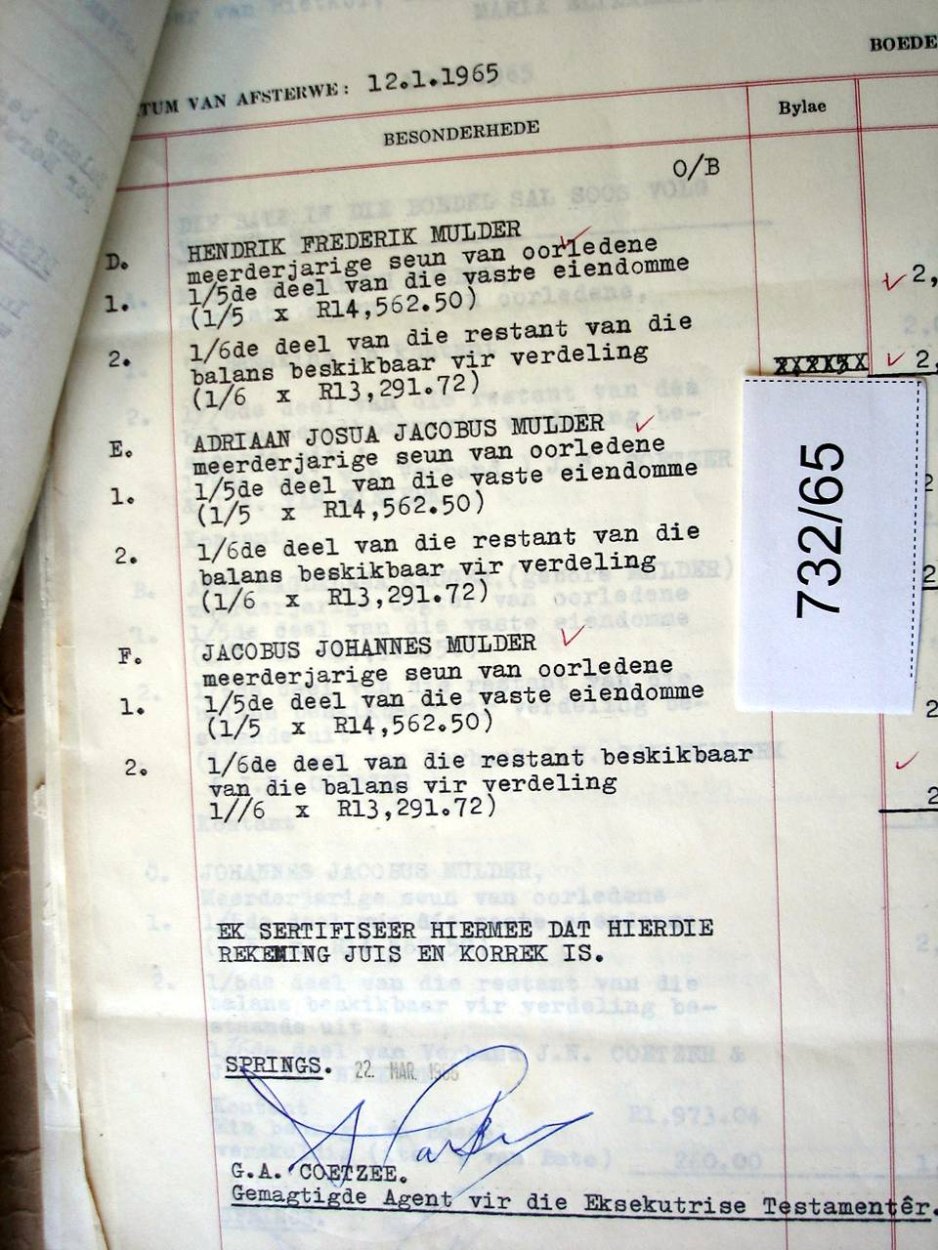 BOEDE
TUM VAN AFSTERWE: 12.1.1965
BESONDERHEDE
Bylae
O/B
D. HENDRIK FREDERIK MULDER
meerderjarige seun van oorledene
1. 1/5de deel van die vaste eiendomme
(1/5 x R14,562.50)
2,
2. 1/6de deel van die restant van die
balans beskikbaar vir verdeling
2.
(1/6 x R13,291.72)
E. ADRIAAN JOSUA JACOBUS MULDER
meerderjarige seun van oorledene
1. 1/5de deel van die vaste eiendomme
(1/5 x R14,562.50)
2
2. 1/6de deel van die restant van die
balans beskikbaar vir verdeling
2
(1/6 x R13,291.72)
732/65
F. JACOBUS JOHANNES MULDER
meerderjarige seun van oorledene
1. 1/5de deel van die vaste eiendomme
(1/5 x R14,562.50)
2
2. 1/6de deel van die restant beskikbaar
van die balans vir verdeling
1//6 x R13,291.72)
2
EK SERTIFISEER HIERMEE DAT HIERDIE
REKENING JUIS EN KORREK IS.
SPRINGS. 22 MAR. 1966
G.A. COETZEE.
Gemagtigde Agent vir die Eksekutrise Testamentêr.